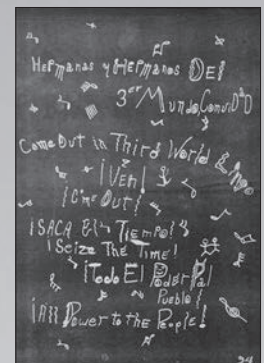 Hermanas y Hermanos DEl
3er Mundo, ComuniDaD
Come Out in Third World &
¡VEn!
¡Come Out!
¡SACA El Tiempo!
¡Seize The Time!
¡Todo El Poder Pal
Pueblo!
¡All Power to the People!
24